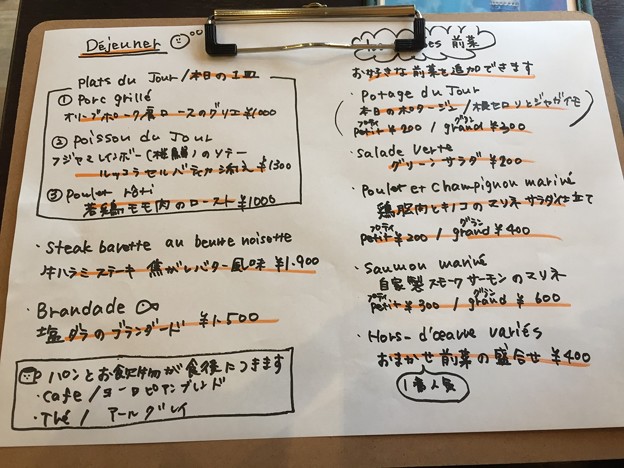 Déjeuner
Plats du Jour/本日の1皿
① Porc grillé
オリーブポーク肩ロースのグリエ¥1000
② Poisson du Jour
フジヤマレインボー(桜鱒)のソテー
ルッコラセルバティカ添え¥1300
③ Poulet rôti
若鶏モモ肉のロースト¥1000
・Steak bavette au beurre noisette
牛ハラミステーキ 焦がしバター風味 ¥1.900
・Brandade
塩ダラのブランダード ¥1.500
パンとお飲み物が食後につきます
・café/ヨーロピアンブレンド
・Thé/ アールグレイ
前菜
お好きな前菜を追加できます
・Potage du Jour
本日のポタージュ/根セロリとジャガイモ
プティ グラン
petit ¥200 / grand ¥300
・salade verte
グリーンサラダ ¥200
・Poulet et Champignon mariné
鶏胸肉とキノコのマリネ サラダ仕立て
プティ グラン
petit ¥200 / grand ¥400
・Saumon mariné
自家製スモークサーモンのマリネ
プティ グラン
petit ¥300 / grand ¥600
・Hors-d'œuvre variés
おまかせ前菜の盛合せ ¥400
1番人気